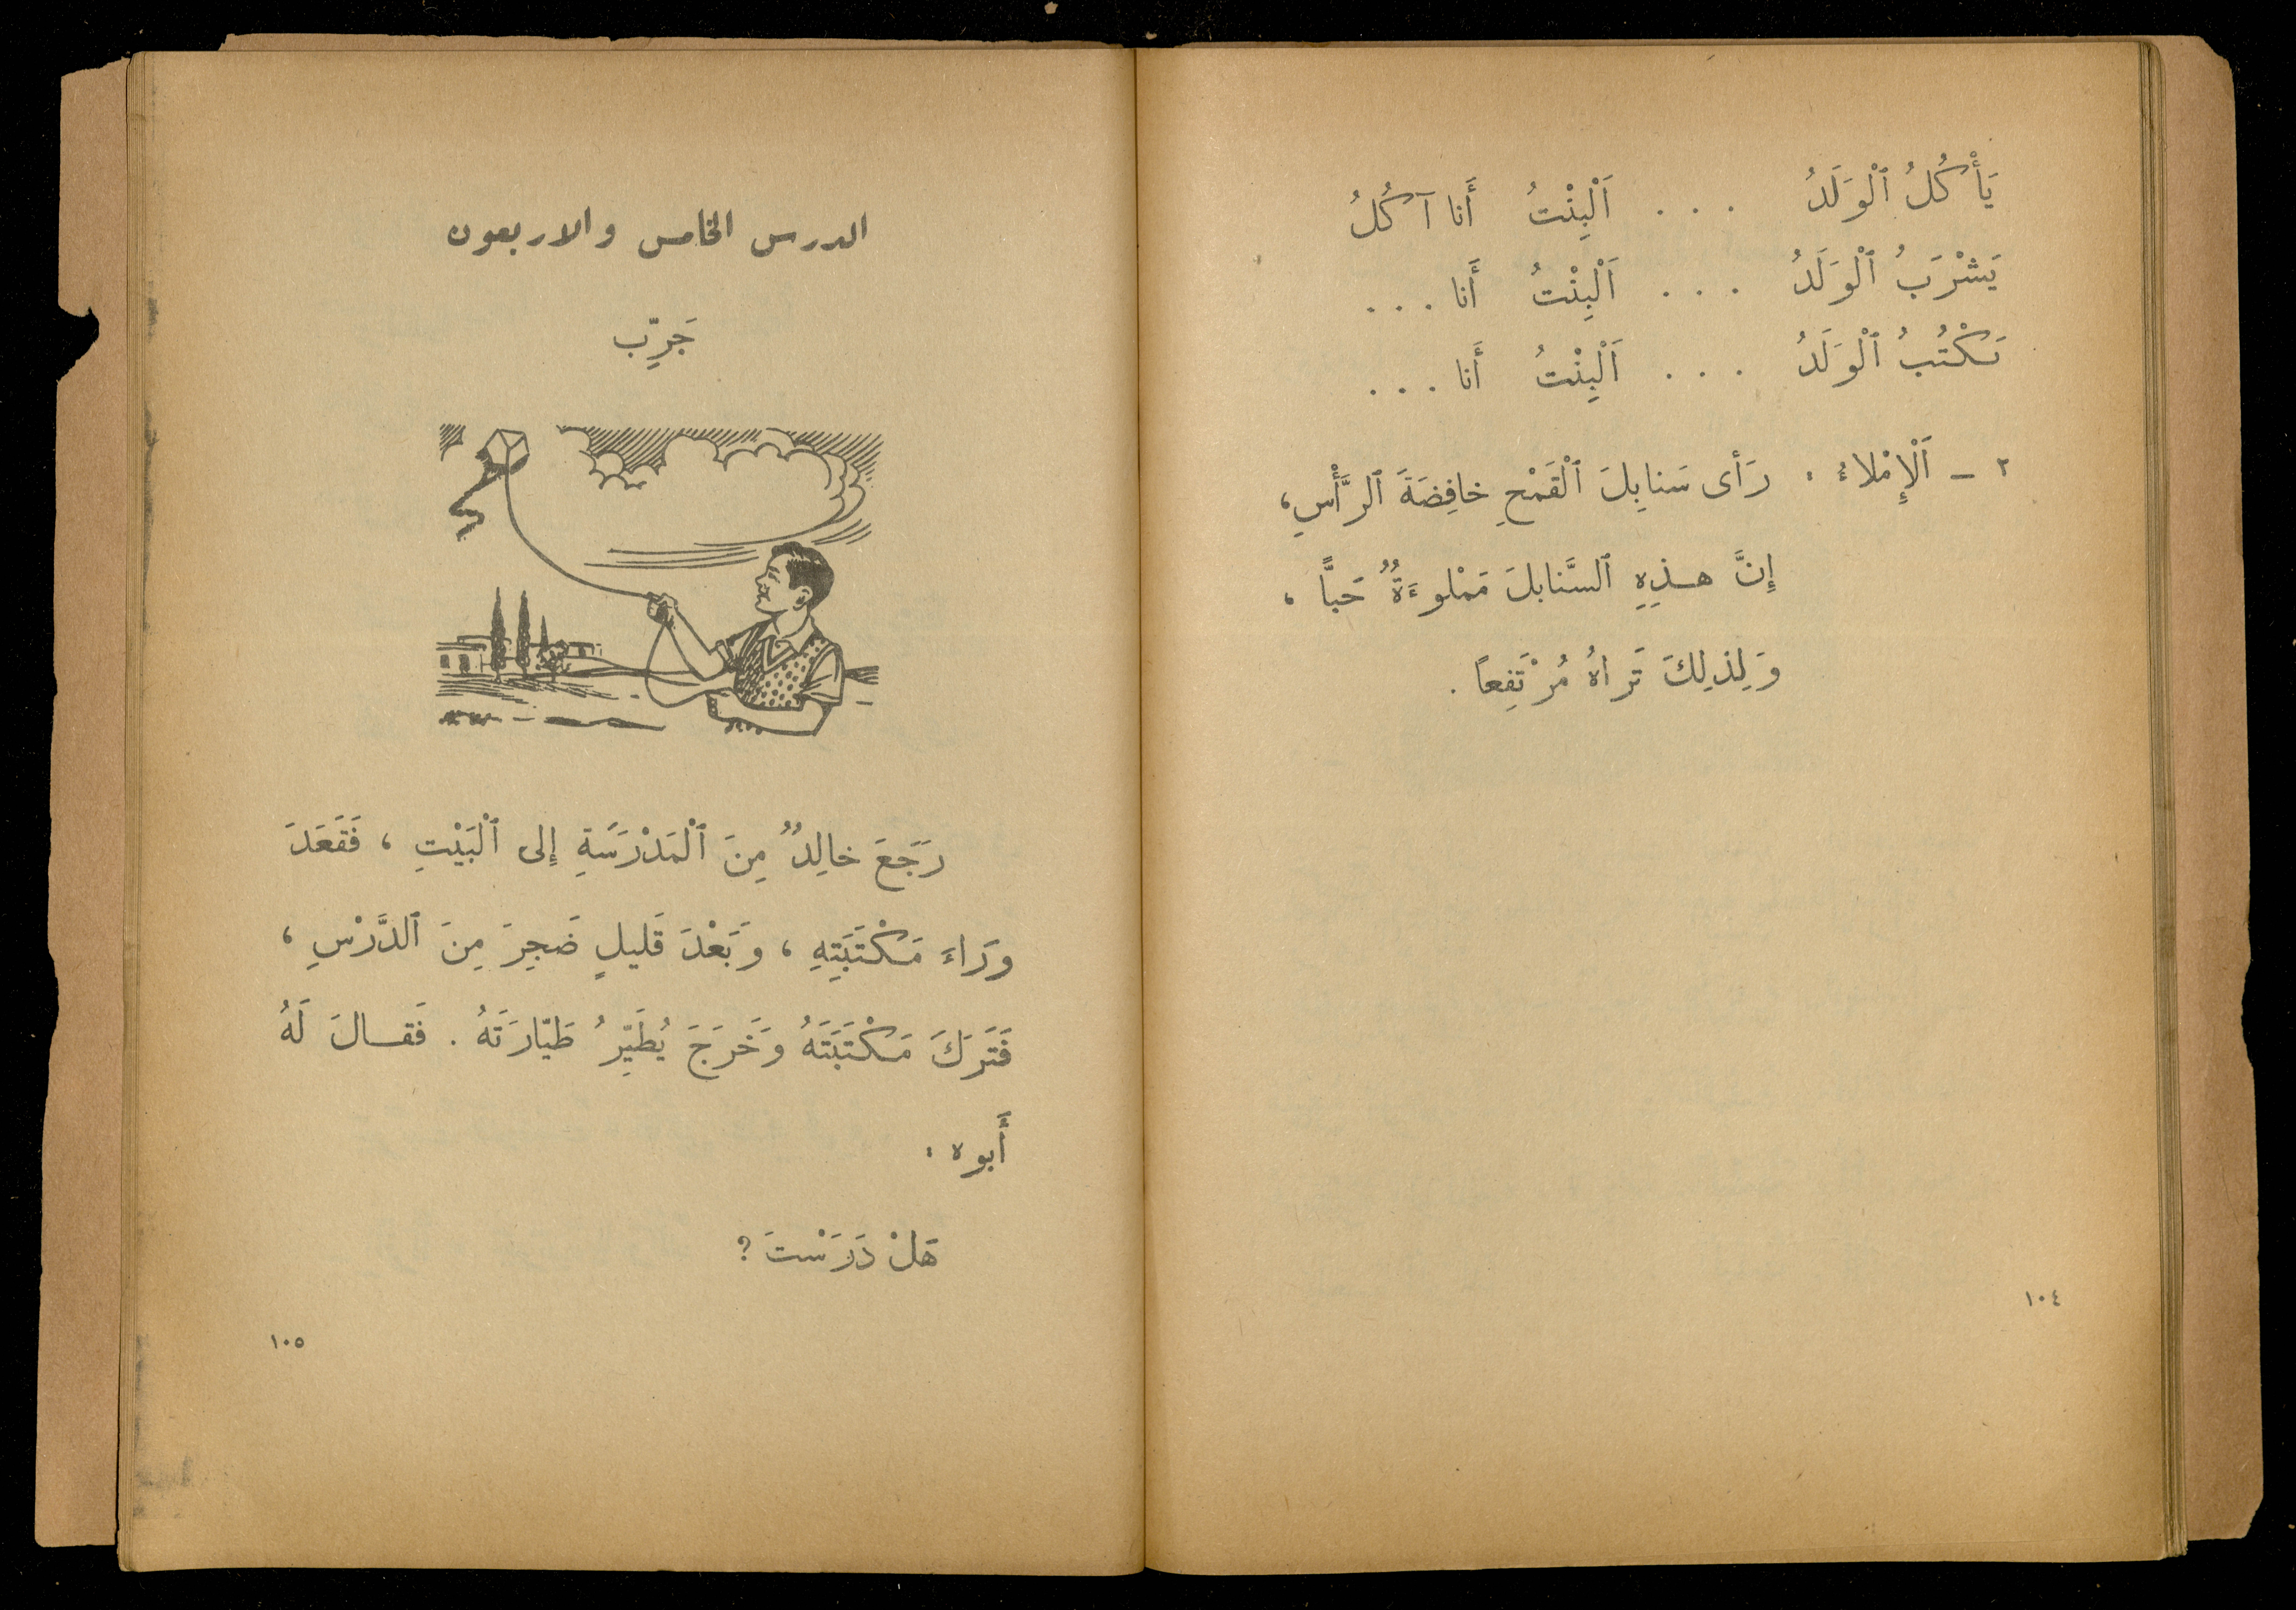 يَأْكُلُ ٱلْوَلَدُ . . . اَلْبِنْتُ أَنا آكُلُ
يَشْرَبُ ٱلْوَلَدُ . . . اَلْبِنْتُ أَنا . . .
يَكْتُبُ ٱلْوَلَدُ . . . اَلْبِنْتُ أَنا . . .
٢ – اَلْإِمْلاءُ : رَأى سَنابِلَ ٱلْقَمْحِ خافِضَةَ ٱلرَّأْسِ ،
إِنَّ هـذِهِ ٱلسَّنابلَ مَمْلوءَةٌ حَبًّا ،
وَلِذلِكَ تَراهُ مُرْتَفِعاً .
١٠٤
الدرس الخامس والاربعون
جَرِّب
رَجَعَ خالِدٌ مِنَ ٱلْمَدْرَسَةِ إِلى ٱلْبَيْتِ ، فَقَعَدَ
وَراءَ مَكْتَبَتِهِ ، وَبَعْدَ قَليلٍ ضَجِرَ مِنَ ٱلدَّرْسِ ،
فَتَرَكَ مَكْتَبَتَهُ وَخَرَجَ يُطَيِّرُ طَيّارَتَهُ . فَقـالَ لَهُ
أَبوه :
هَلْ دَرَسْتَ ؟
١٠٥